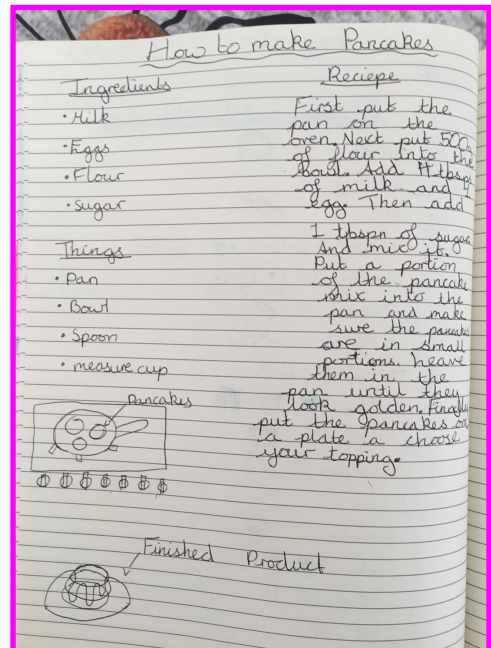 How to make Pancakes
Ingredients
• Milk
• Eggs
• Flour
• sugar
Things
• Pan
• Bowl
• Spoon
• measure cup
Pancakes
Reciepe
First put the
pan on the
oven. Next put 500
of flour into the
bowl. Add 14 tbspn
of milk and 1
egg. Then add
1 tbspn of sugar
And mix it.
Put a portion
of the pancake
mix into the
pan and make
sure the pancakes
are in small
portions. Leave
them in the
pan until they
look golden. Finally
put the pancakes on
a plate a choose
your topping.
Finished Product